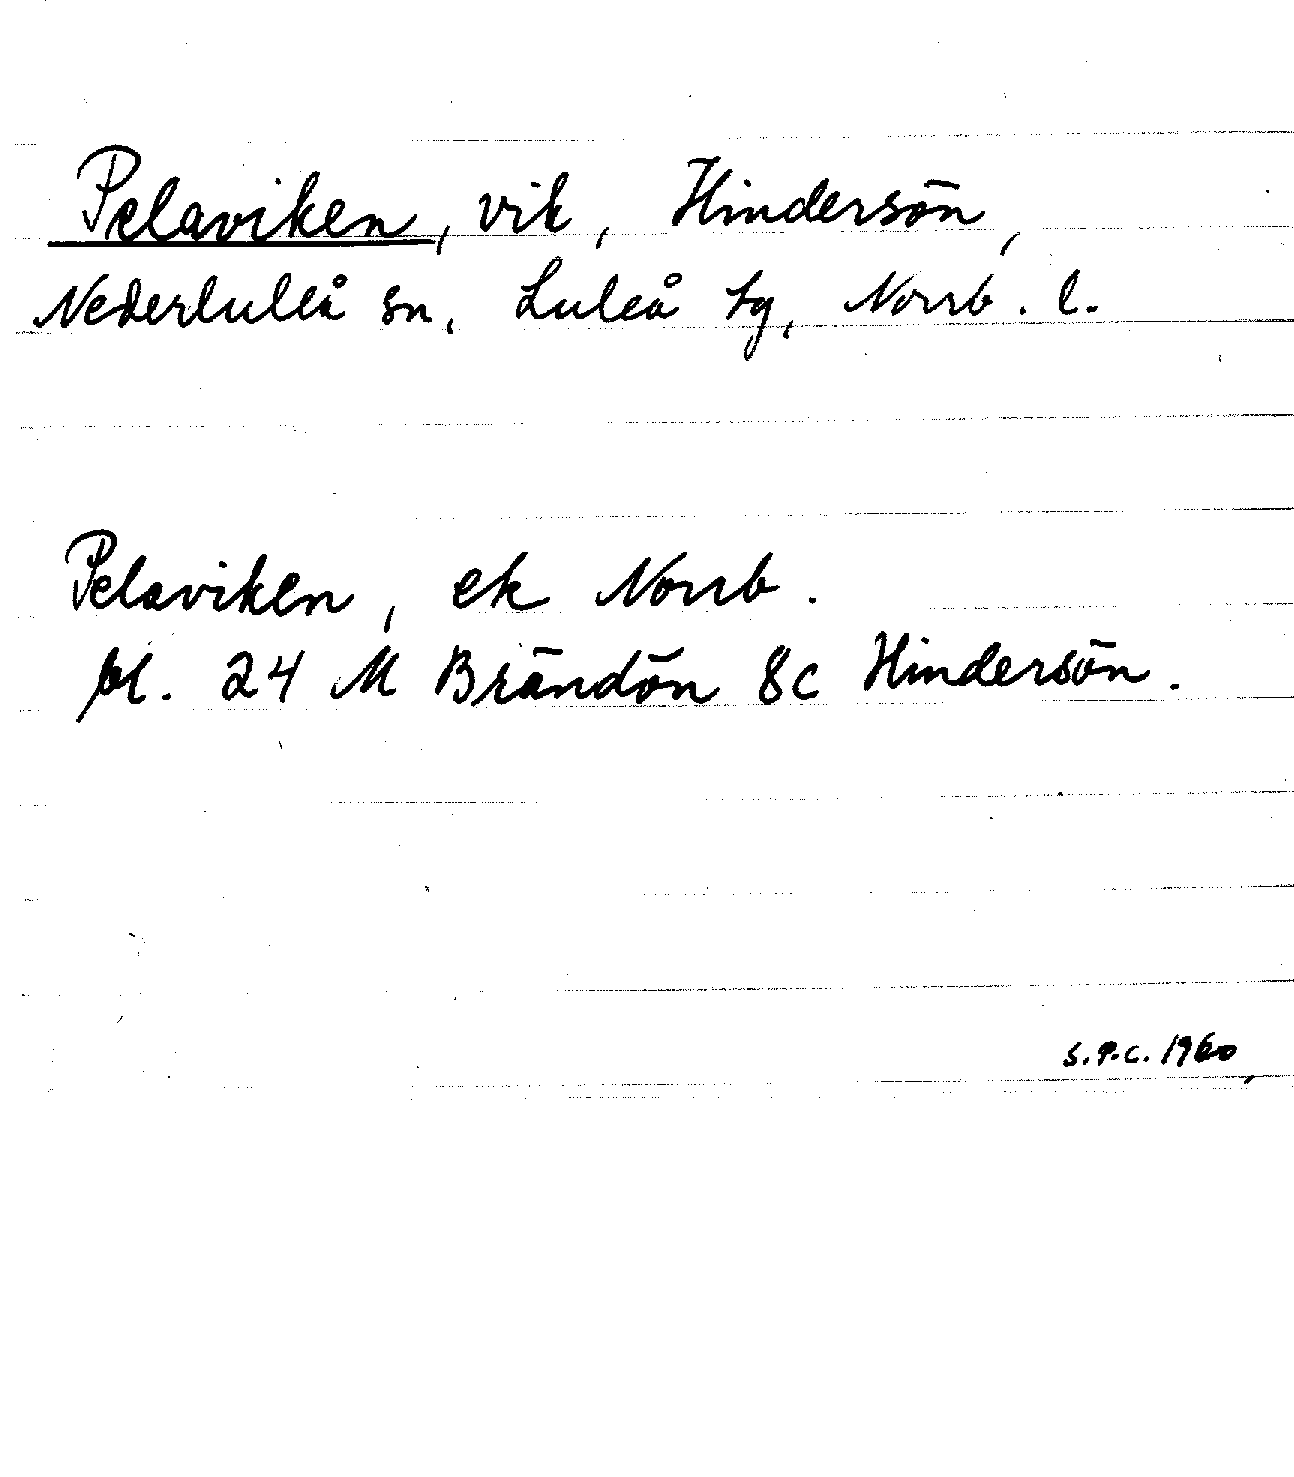 Pelaviken, vik, Hindersön,
Nederluleå sn, Luleå tg, Norrb. l.
Pelaviken, ek Norrb.
bl. 24 M Brändön 8c Hindersön.
S.P.C. 1960